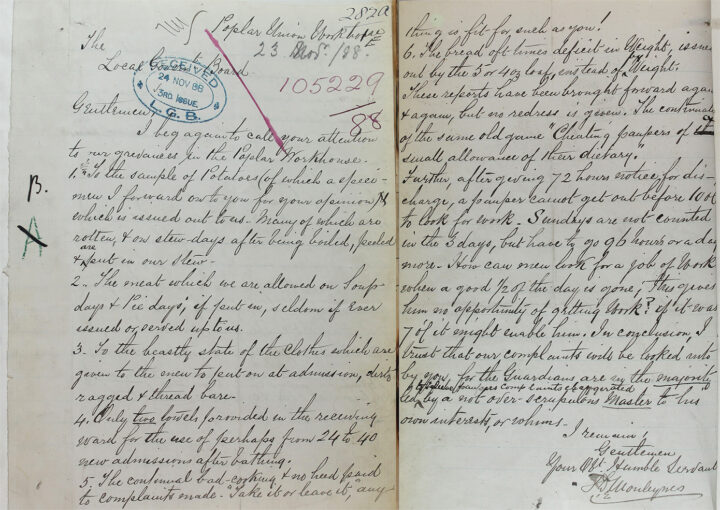 282a
Poplar Union Workhouse
23 Nov. /88.
The
Local Govern't Board
RECEIVED
24 NOV 88
3RD ISSUE
L.G.B.
105229
88
Gentlemen,
I beg again to call your attention
to our grievances in the Poplar Workhouse.
1. To the sample of Potatoes (of which a speci-
men I forward on to you for your opinion)
which is issued out to us. Many of which are
rotten, & on stew-days after being boiled, peeled
& are put in our stew.
2. The meat which we are allowed on Soup
days & Pie days, if put in, seldom if ever
issued or served up to us.
3. To the beastly state of the Clothes which are
given to the men to put on at admission, dirty
ragged & thread bare.
4. Only two towels provided in the receiving
ward for the use of perhaps from 24 to 40
new admissions after bathing.
5. The continual bad-cooking & no heed paid
to complaints made. "Take it or leave it," "any
B.
A
thing is fit for such as you!
6. The bread oft times deficit in Weight, issued
out by the 5 or 4 oz loaf, instead of Weight.
These reports have been brought forward again
& again, but no redress is given. The continuation
of the same old game "Cheating paupers of
small allowance of their dietary."
Further, after giving 72 hours notice for dis-
charge, a pauper cannot get out before 10
to look for work. Sundays are not counted
in the 3 days, but have to go 96 hours or a day
more. How can men look for a job of Work
when a good ½ of the day is gone, this gives
him no opportunity of getting Work? if it was
7 it might enable him. In conclusion, I
trust that our complaints will be looked into
by you, for the Guardians are in the majority
paupers complaints exaggerated
led by a not over-scrupulous Master to his
own interests, or whims.
I remain,
Gentlemen
Your Obt Humble Servant